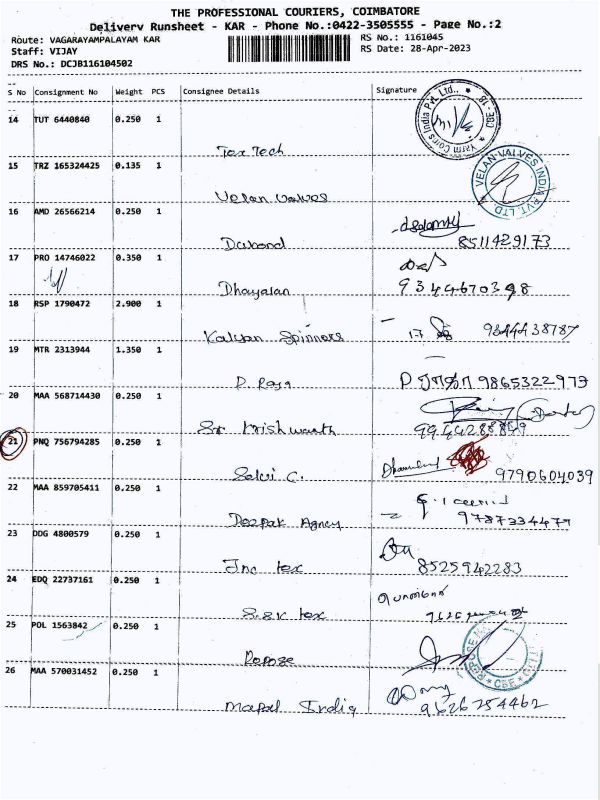 THE PROFESSIONAL COURIERS, COIMBATORE
Delivery Runsheet - KAR - Phone No.:0422-3505555 - Page No.:2
Route: VAGARAYAMPALAYAM KAR
RS No.: 1161045
Staff: VIJAY
RS Date: 28-Apr-2023
DRS No.: DCJB116104502
S No Consignment No Weight PCS Consignee Details Signature
14 TUT 6440840 0.250 1
Tex Tech
15 TRZ 165324425 0.135 1
VELAN-VALVES INDIA PVT. LTD.
Velan Valves
16 AMD 26566214 0.250 1
8511429173
17 PRO 14746022 0.350 1
Dhayalan 9344670398
18 RSP 1790472 2.900 1
Kalyan Spinners 9344438787
19 MTR 2313944 1.350 1
D. Raja 9865322973
20 MAA 568714430 0.250 1
Sri Krishwarth
21 PNQ 756794285 0.250 1
Selvi C. 9790604039
22 MAA 859705411 0.250 1
Deepak Agncy 9787334477
23 DDG 4800579 0.250 1
Jnc tex 8525942283
24 EDQ 22737161 0.250 1
S.S.K tex
25 POL 1563842 0.250 1
Repose
26 MAA 570031452 0.250 1
Mapal India 9626754462